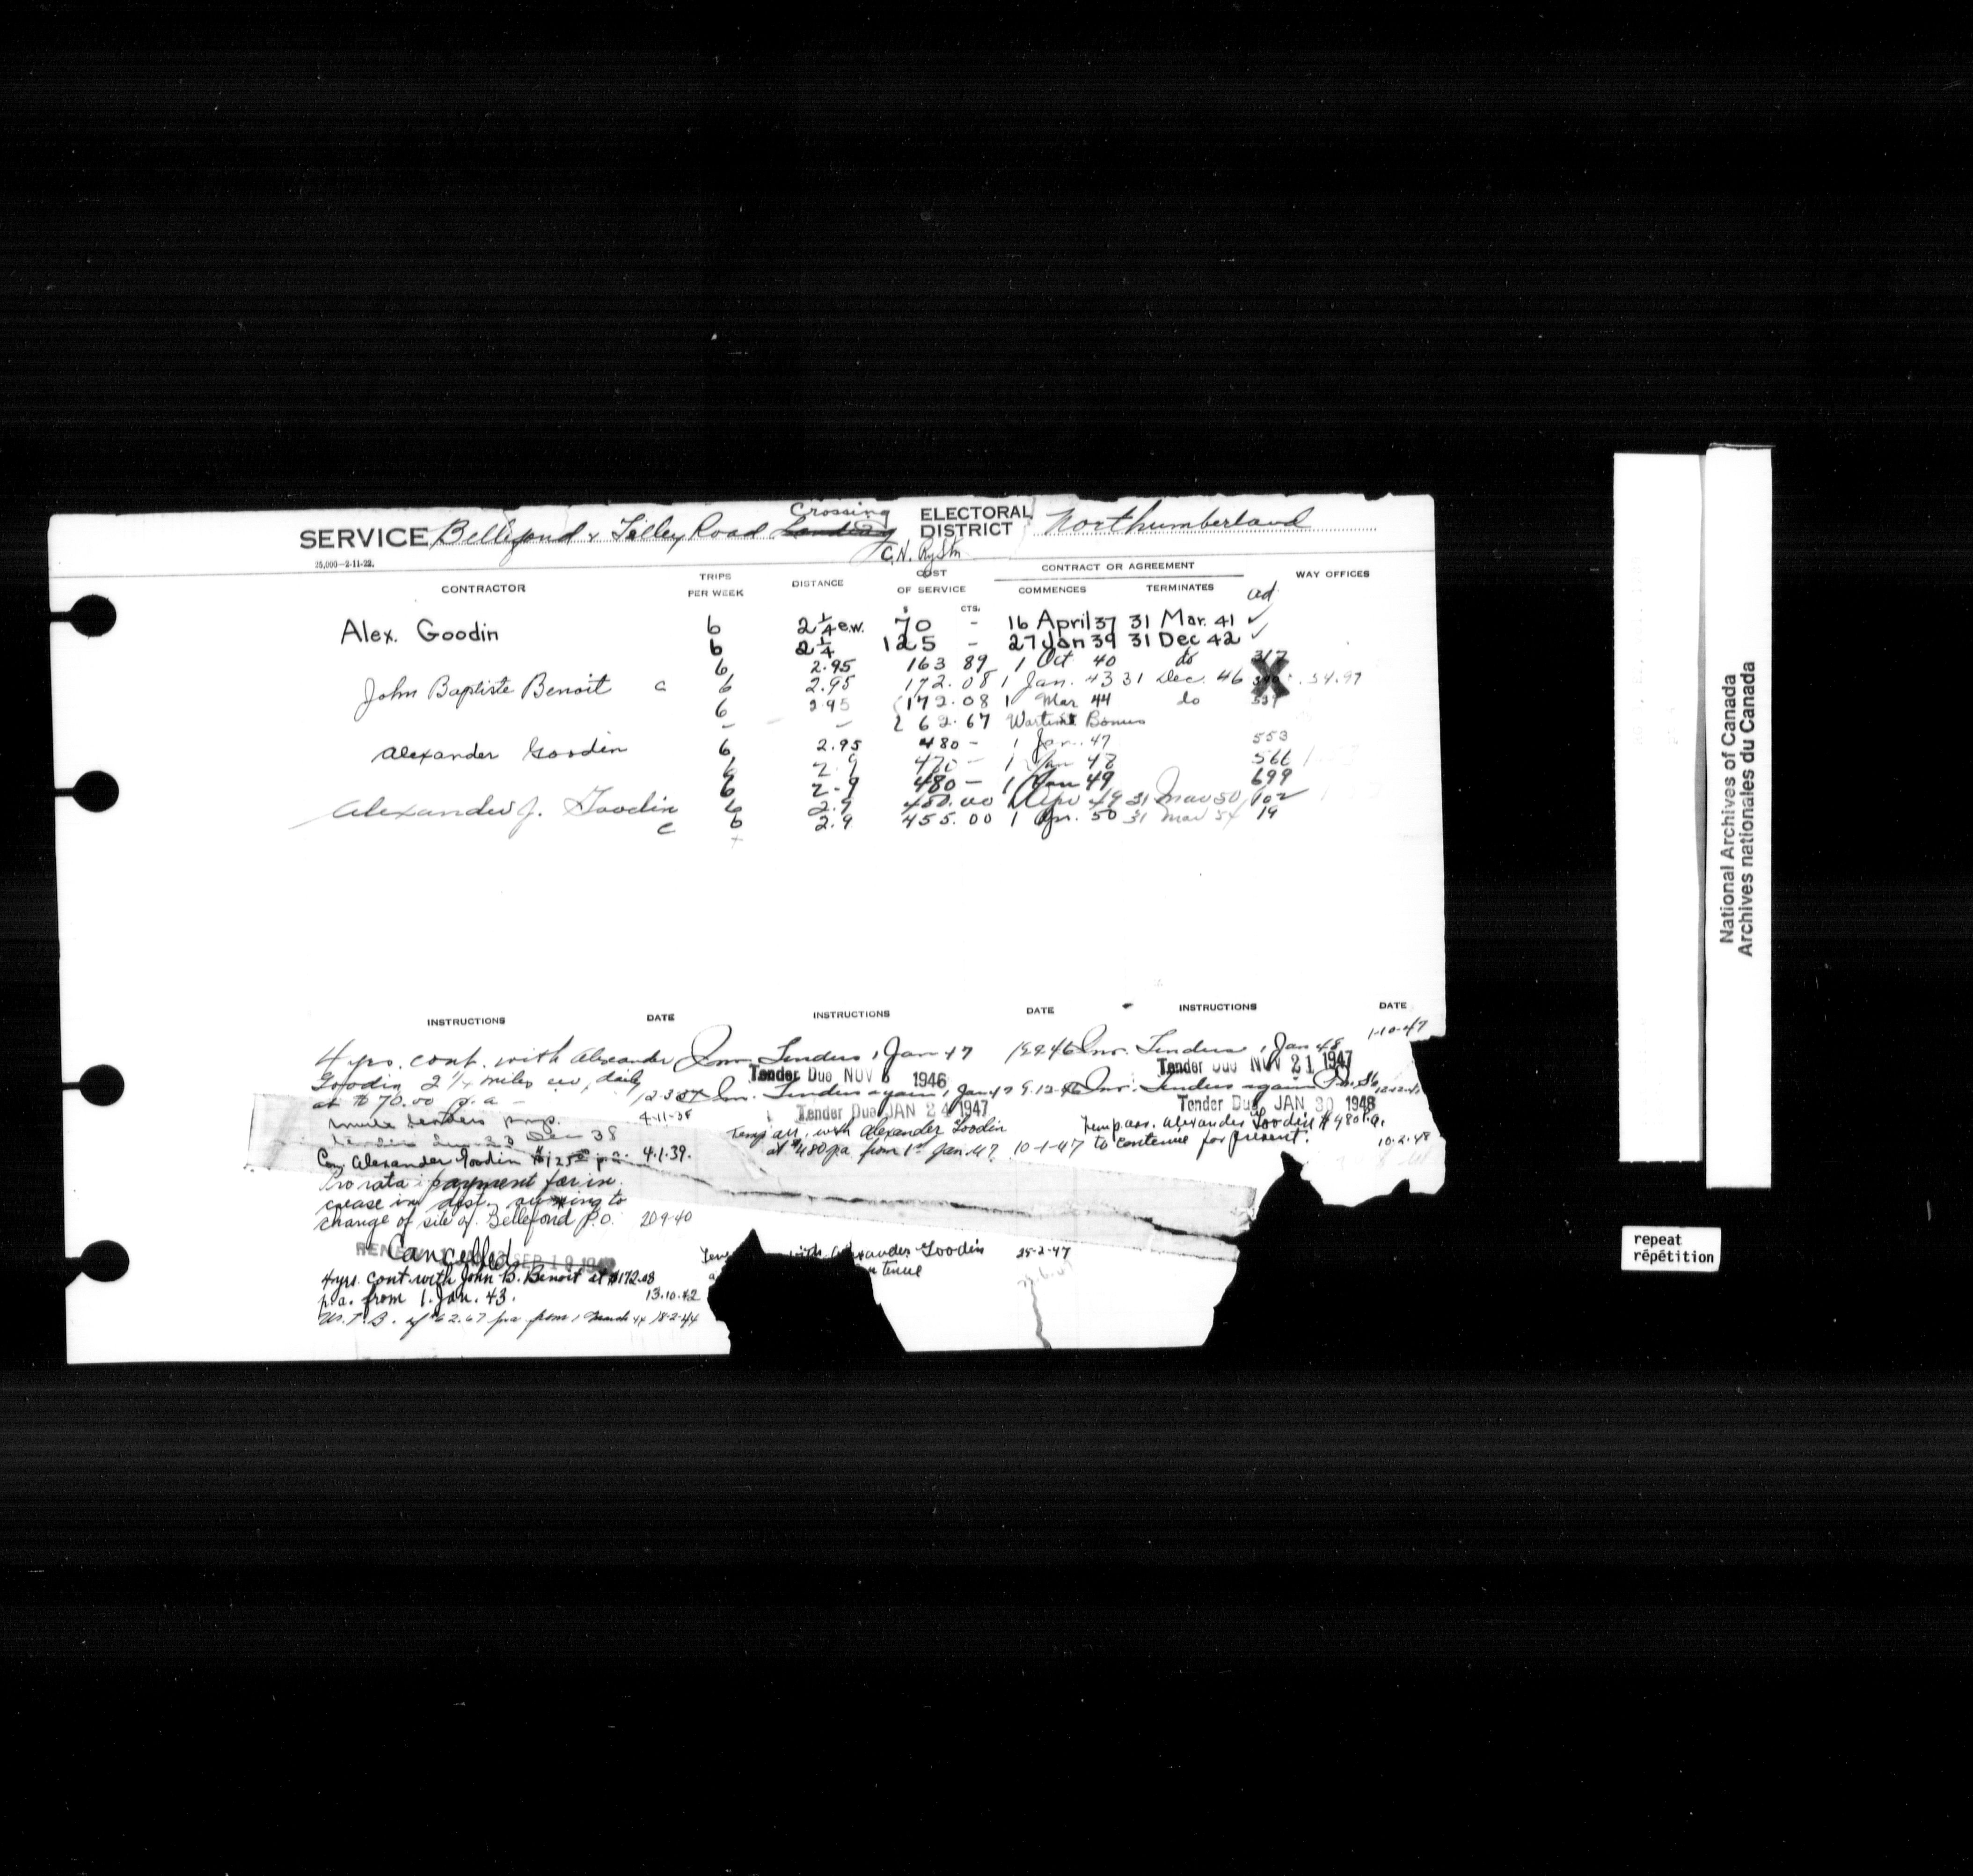 Crossing
SERVICE Bellefond & Tilley Road Landing ELECTORAL DISTRICT Northumberland
C.N. Ry Stn
25,000—2-11-22.
CONTRACTOR TRIPS PER WEEK DISTANCE COST OF SERVICE CONTRACT OR AGREEMENT COMMENCES TERMINATES WAY OFFICES
$ CTS. ad.
Alex. Goodin 6 2 1/4 e.w. 70 - 16 April 37 31 Mar. 41 ✓
6 2 1/4 125 - 27 Jan 39 31 Dec 42 ✓
6 2.95 163 89 1 Oct 40 do 317
John Baptiste Benoit c 6 2.95 172.08 1 Jan. 43 31 Dec. 46 54.97
6 2.95 172.08 1 Mar 44 do
- - 62.67 Wartime Bonus
Alexander Goodin 6 2.95 480 - 1 Jan. 47 553
6 2.9 1 Jan 48 566
6 2.9 480 - 1 Jan 49 699
Alexander J. Goodin 6 2.9 1 Apr 49 31 Mar 50 102
c 6 2.9 455.00 1 Apr. 50 31 Mar 54 19
INSTRUCTIONS DATE INSTRUCTIONS DATE INSTRUCTIONS DATE
4 yrs. cont. with Alexander
Goodin 2 1/4 miles ew, daily
at $70.00 p.a -
Invite tenders 4-11-38
Tenders Due 23 Dec 38
Con. Alexander Goodin $125.00 p.a. 4.1.39.
Pro rata payment for in
crease in dist. owing to
change of site of Bellefond P.O. 20 9-40
Cancelled
4 yrs. cont. with John B. Benoit at $172.08
p.a. from 1. Jan. 43. 13.10.42
W.T.B. of $62.67 p.a. from 1 March 44 18-2-44
Inv. Tenders 1 Jan 47
Tender Due NOV 1946
Inv. Tenders again 1 Jan 47 9-12-46
Tender Due JAN 24 1947
Temp arr. with Alexander Goodin
at $480 pa from 1st Jan. 47. 10-1-47
with Alexander Goodin 25-2-47
Inv. Tenders 1 Jan 48 1-10-47
Tender Due NOV 21 1947
Inv. Tenders again
Tender Due JAN 30 1948
Temp arr. Alexander Goodin $480 p.a.
to continue for present. 10-2-48
National Archives of Canada
Archives nationales du Canada
repeat
répétition